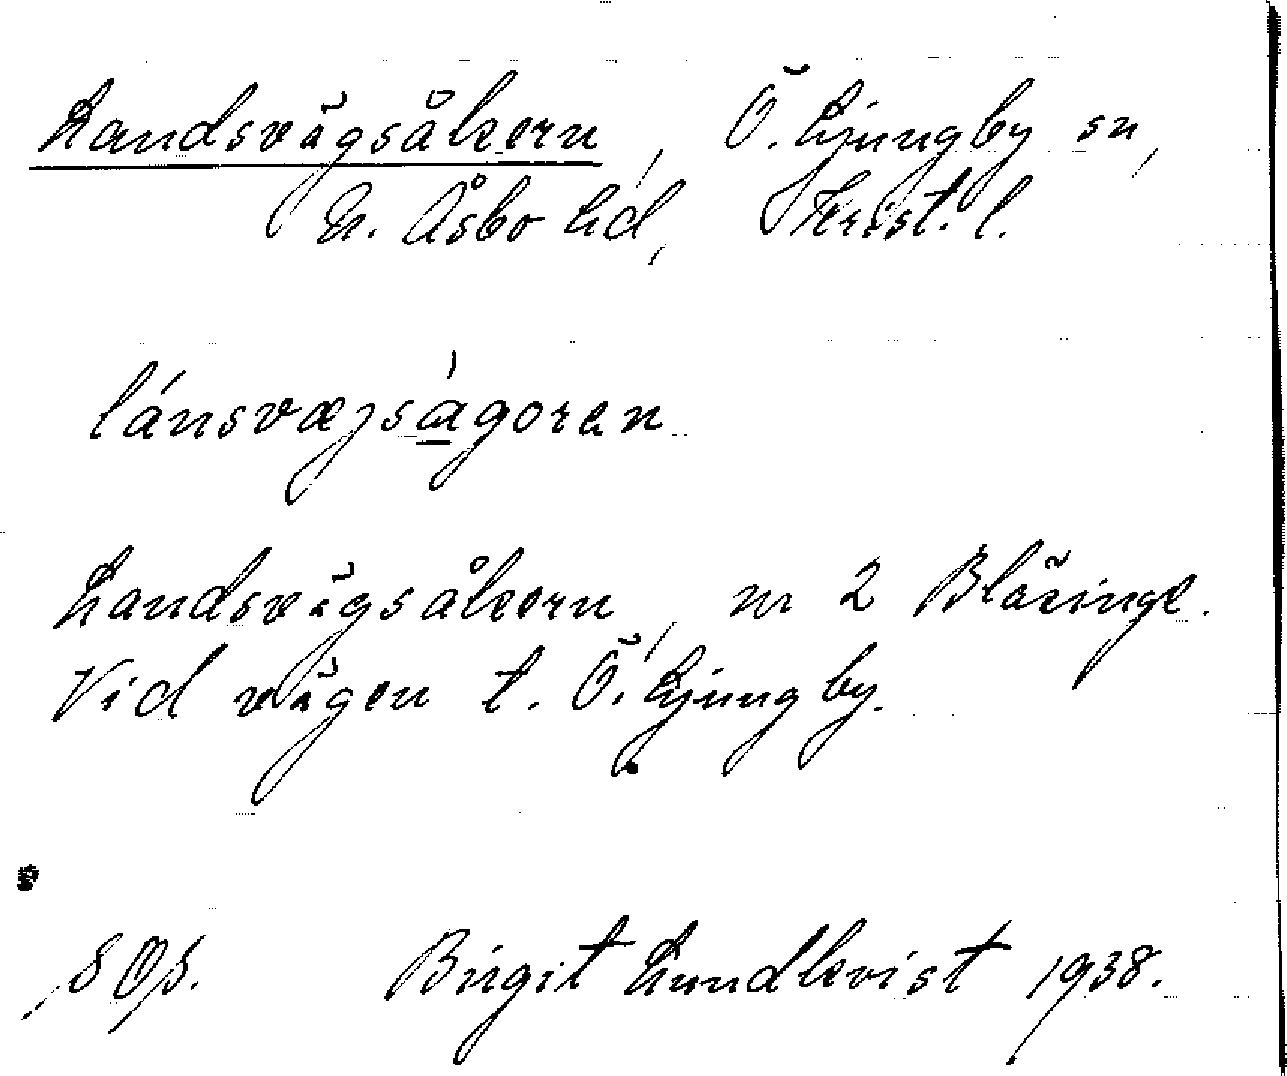 Landsvägsåkern, Ö. Ljungby sn,
N. Åsbo hd, Krist. l.
lánsvæjságoren
Landsvägsåkern, nr 2 Bläsinge.
Vid vägen t. Ö. Ljungby.
Birgit Lundkvist 1938.